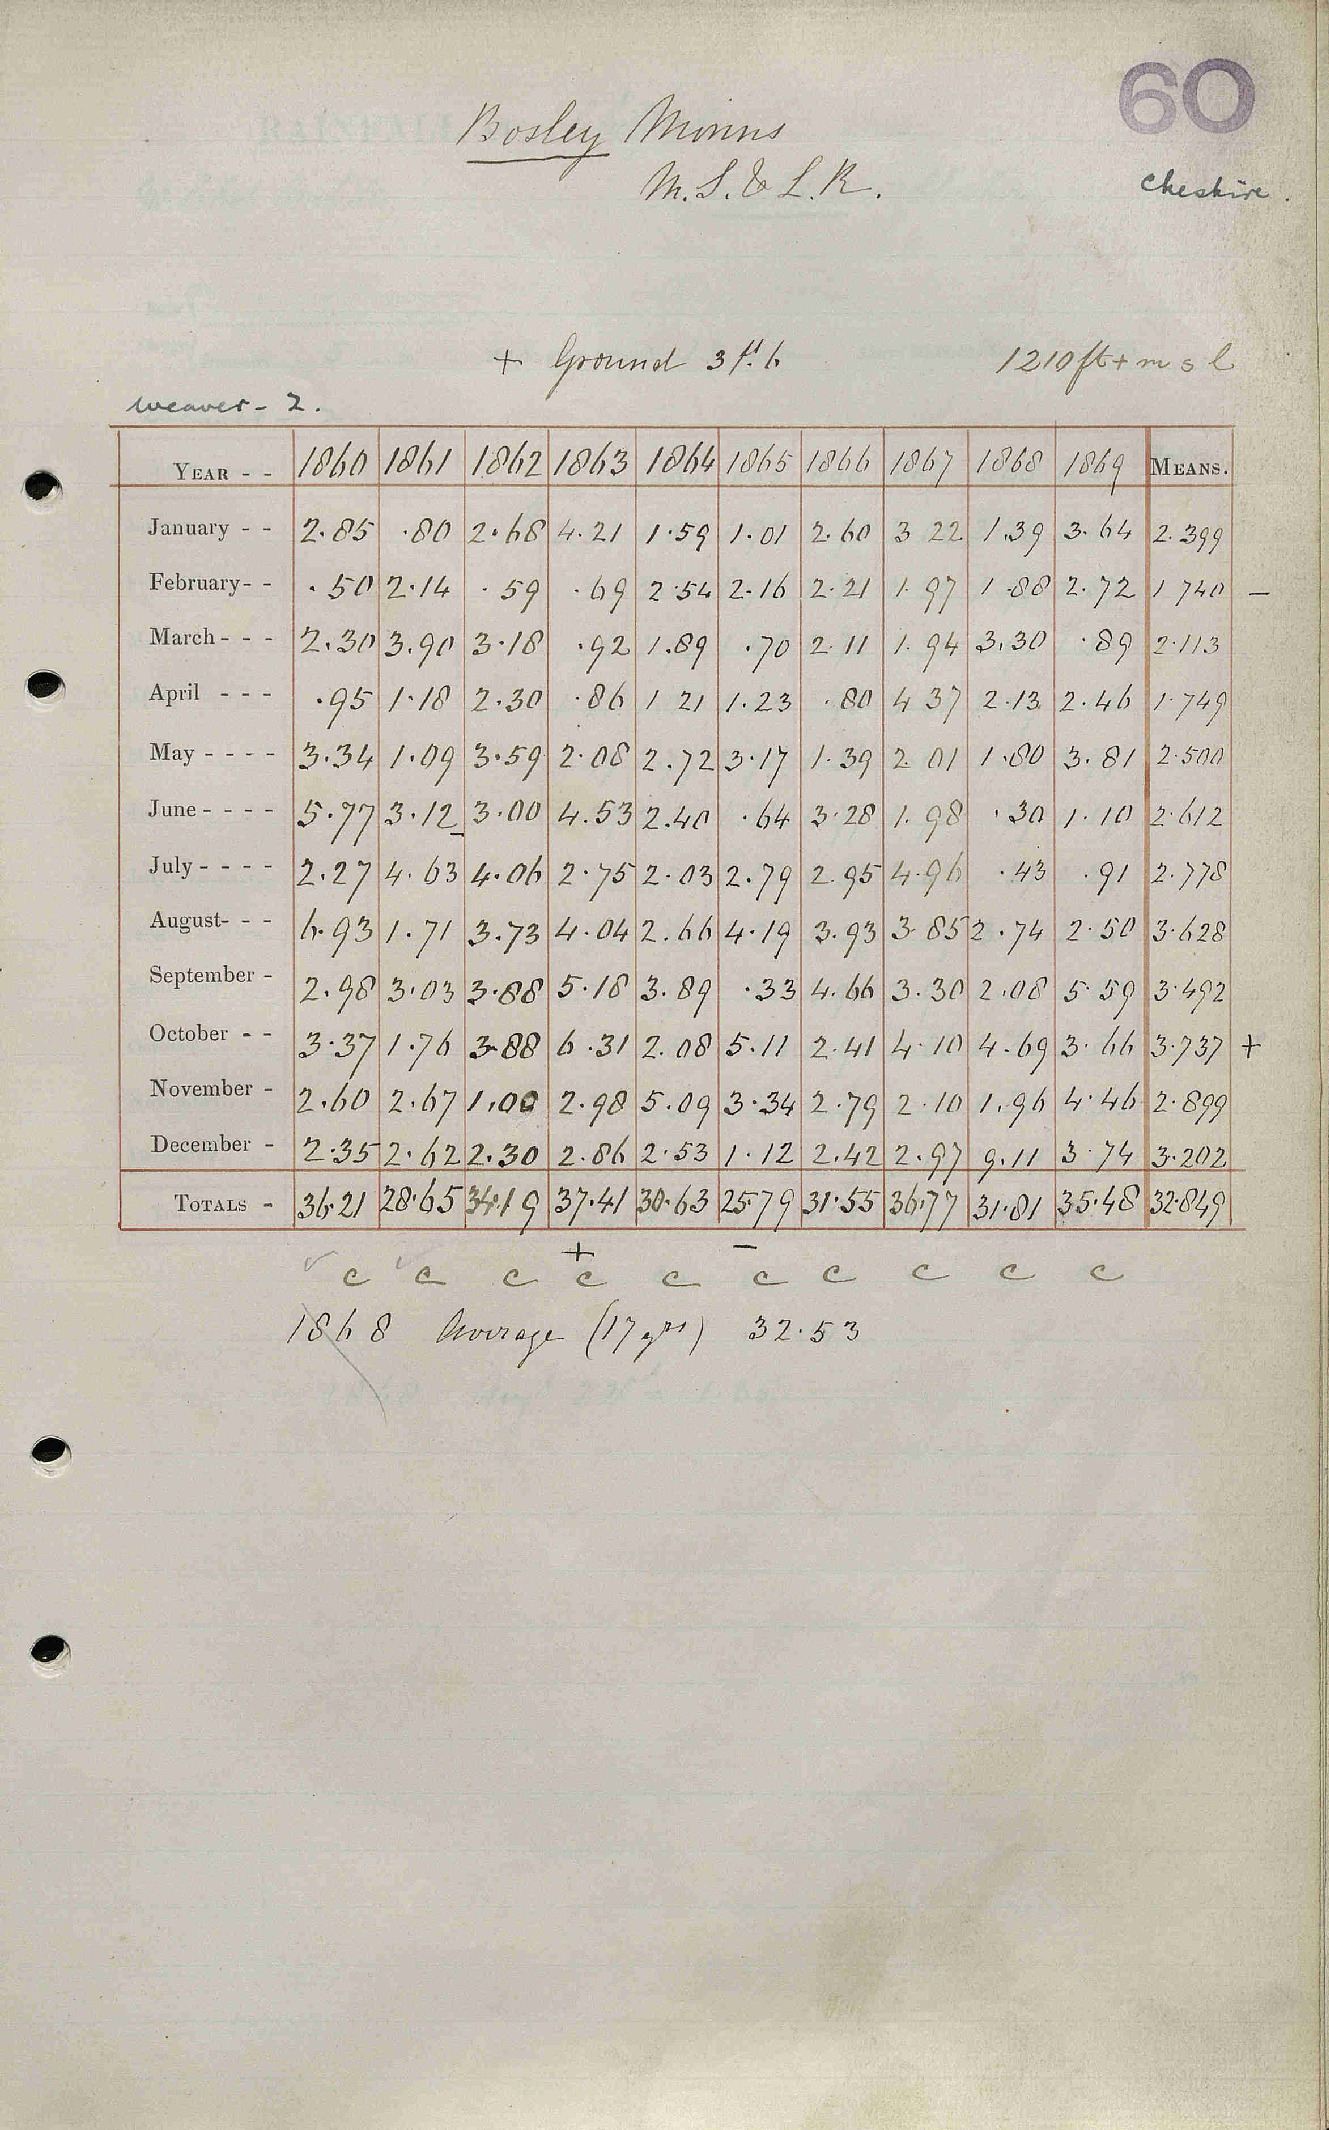 60
Bosley Minns
M.S. & L.R.
Cheshire.
+ Ground 3 ft. 6
1210 ft + m s l
Weaver - 2.
YEAR - - 1860 1861 1862 1863 1864 1865 1866 1867 1868 1869 MEANS.
January - - 2.85 .80 2.68 4.21 1.59 1.01 2.60 3 22 1.39 3.64 2.399
February - - .50 2.14 .59 .69 2.54 2.16 2.21 1.97 1.88 2.72 1 740 –
March - - - 2.30 3.90 3.18 .92 1.89 .70 2.11 1.94 3.30 .89 2.113
April - - - .95 1.18 2.30 .86 1 21 1.23 .80 4 37 2.13 2.46 1.749
May - - - - 3.34 1.09 3.59 2.08 2.72 3.17 1.39 2 01 1.80 3.81 2.500
June - - - - 5.77 3.12 3.00 4.53 2.40 .64 3.28 1.98 .30 1.10 2.612
July - - - - 2.27 4.63 4.06 2.75 2.03 2.79 2.95 4.96 .43 .91 2.778
August - - - 6.93 1.71 3.73 4.04 2.66 4.19 3.93 3.85 2.74 2.50 3.628
September - 2.98 3.03 3.88 5.18 3.89 .33 4.66 3.30 2.08 5.59 3.492
October - - 3.37 1.76 3.88 6.31 2.08 5.11 2.41 4.10 4.69 3.66 3.737 +
November - 2.60 2.67 1.00 2.98 5.09 3.34 2.79 2.10 1.96 4.46 2.899
December - 2.35 2.62 2.30 2.86 2.53 1.12 2.42 2.97 9.11 3.74 3.202
TOTALS - 36.21 28.65 34.19 37.41 30.63 25.79 31.55 36.77 31.81 35.48 32.849
+ –
c c c c c c c c c c
1868 Average (17 yrs) 32.53